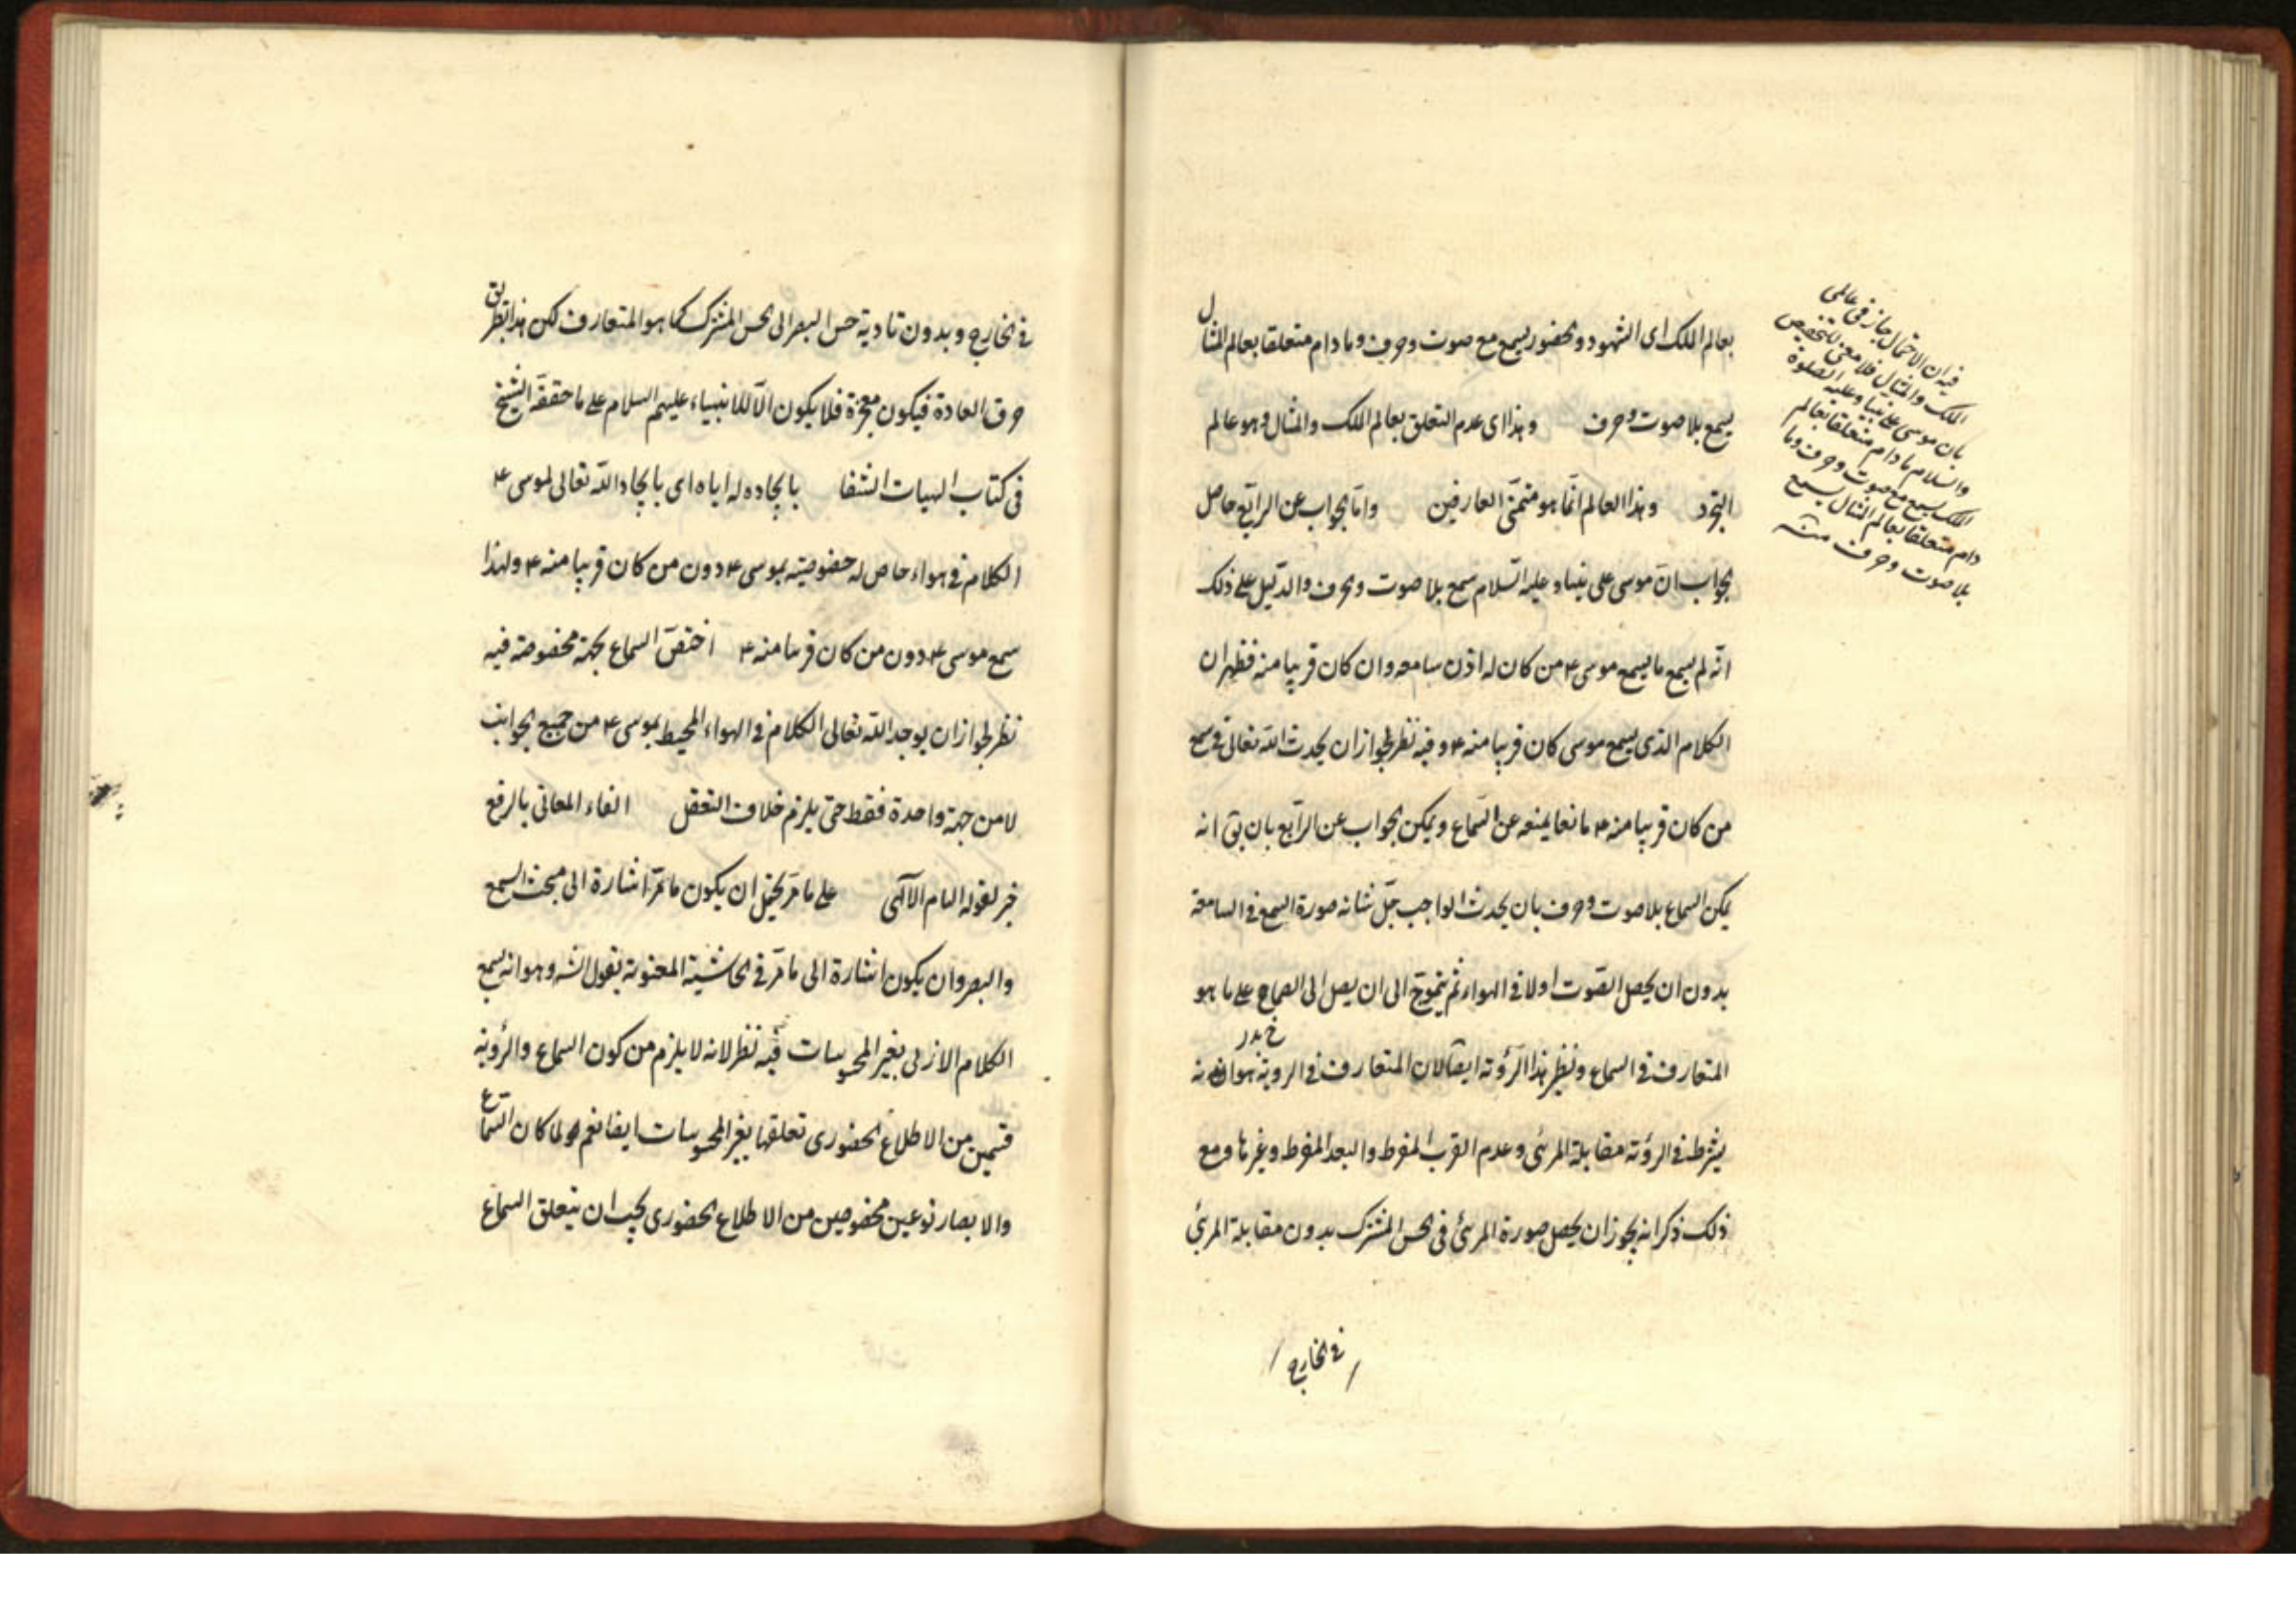 بعالم الملك اى الشهود والحضور يسمع مع صوت وحرف وما دام متعلقا بعالم المثال
يسمع بلا صوت وحرف وهذا اى عدم التعلق بعالم الملك والمثال وهو عالم
التجرد وهذا العالم انّما هو متمنّى العارفين وامّا الجواب عن الرابع حاصل
الجواب انّ موسى على نبينا وعليه السّلام سمع بلا صوت وحرف والدّليل على ذلك
انّه لم يسمع ما يسمع موسى ع من كان له اذن سامعه وان كان قريبا منه فظهر ان
الكلام الذى يسمع موسى كان قريبا منه ع وفيه نظر لجواز ان يحدث الله تعالى فى سمع
من كان قريبا منه ع مانعا يمنعه عن السّماع ويمكن الجواب عن الرّابع بان يق انه
يمكن السماع بلا صوت وحرف بان يحدث الواجب جلّ شانه صورة السمع فى السامعة
بدون ان يحصل الصّوت اولا فى الهواء ثم يتموّج الى ان يصل الى الصماخ على ما هو
المتعارف فى السماع ونظير هذا الرّؤية ايضا لان المتعارف فى الروية هو انه
يشترط فى الرؤية مقابلة المرئى وعدم القرب المفرط والبعد المفرط وغيرها ومع
ذلك ذكر انه يجوز ان يحصل صورة المرئى فى الحس المشترك بدون مقابلة المرئى
فى الخارج
فيه ان الاحتمال جاز فى عالمى
الملك والمثال فلا معنى للتخصيص
بان موسى على نبينا وعليه الصلوة
والسلام ما دام متعلقا بعالم
الملك يسمع مع صوت وحرف وما
دام متعلقا بعالم المثال يسمع
بلا صوت وحرف منه
فى الخارج وبدون تادية حس البصر الى الحس المشترك كما هو المتعارف لكن هذا بطريق
خرق العادة فيكون معجزة فلا يكون الّا للانبياء عليهم السلام على ما حققه الشيخ
فى كتاب الهيات الشفا بايجاده له اياه اى بايجاد الله تعالى لموسى ع
الكلام فى هواء خاص له خصوصية بموسى ع دون من كان قريبا منه ع ولهذا
سمع موسى ع دون من كان قريبا منه ع اختصّ السماع بجهة مخصوصة فيه
نظر لجواز ان يوجد الله تعالى الكلام فى الهواء المحيط بموسى ع من جميع الجوانب
لا من جهة واحدة فقط حتى يلزم خلاف التعقل القاء المعانى بالرفع
خبر لقوله الهام الالهى على ما مرّ يحتمل ان يكون ما مرّ اشارة الى مبحث السمع
والبصر وان يكون اشارة الى ما مرّ فى الحاشية المعنونة بقول الشه وهو انه يسمع
الكلام الازلى بغير المحسوسات فيه نظر لانه لا يلزم من كون السماع والرؤية
قسمين من الاطلاع الحضورى تعلقها بغير المحسوسات ايضا نعم لما كان السماع
والابصار نوعين مخصوصين من الاطلاع الحضورى يجب ان يتعلق السماع